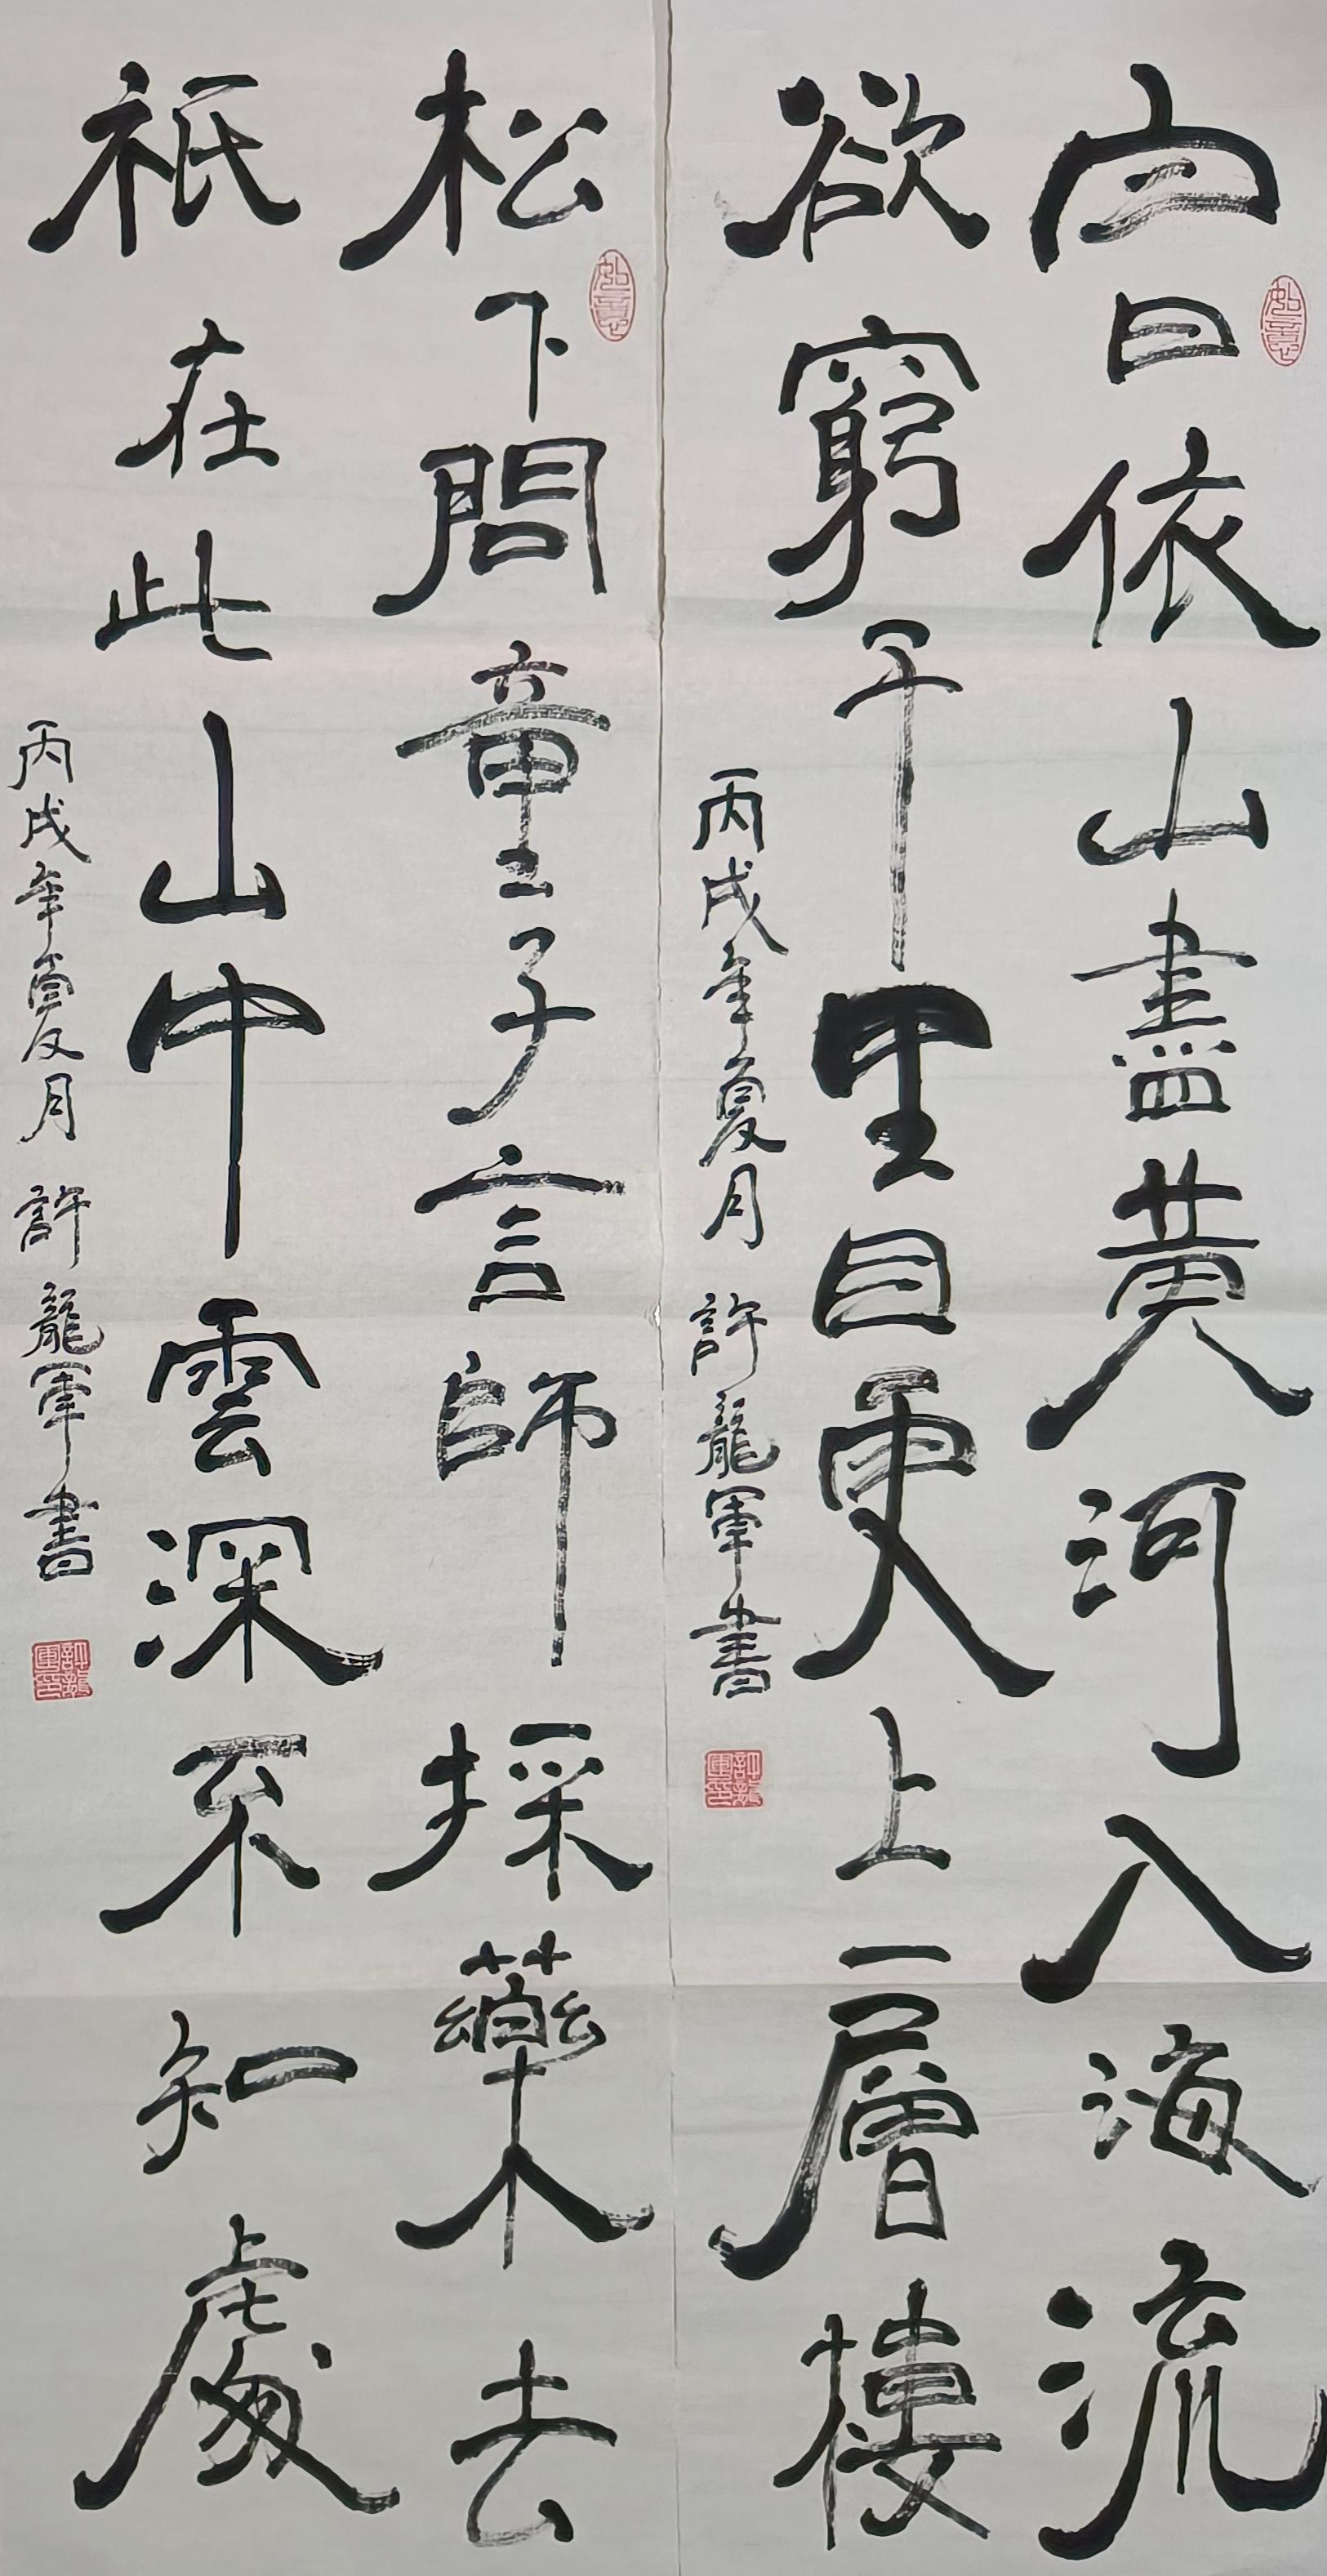 白日依山盡黃河入海流
欲窮千里目更上一層樓
丙戌年夏月 許龍軍書
許龍軍印
如意
松下問童子言師採藥去
祇在此山中雲深不知處
丙戌年夏月 許龍軍書
許龍軍印
如意